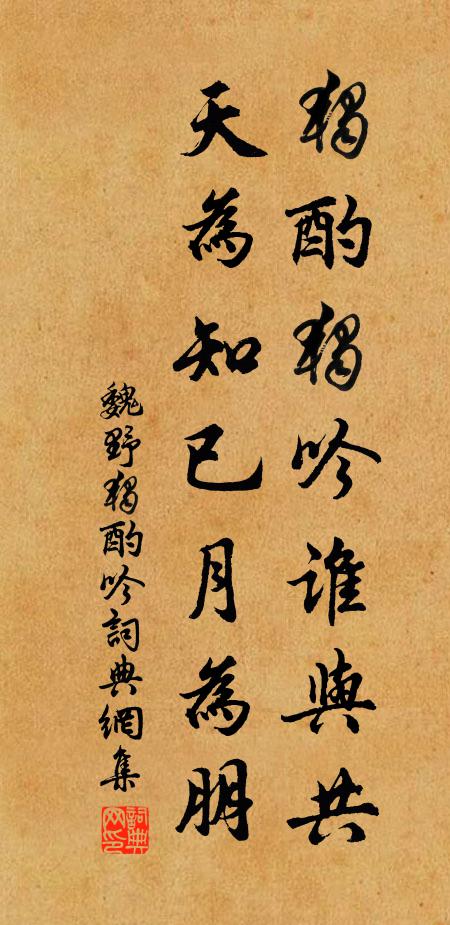 獨酌獨吟誰與共
天為知已月為朋
魏野獨酌吟詞典網集
詞典網印